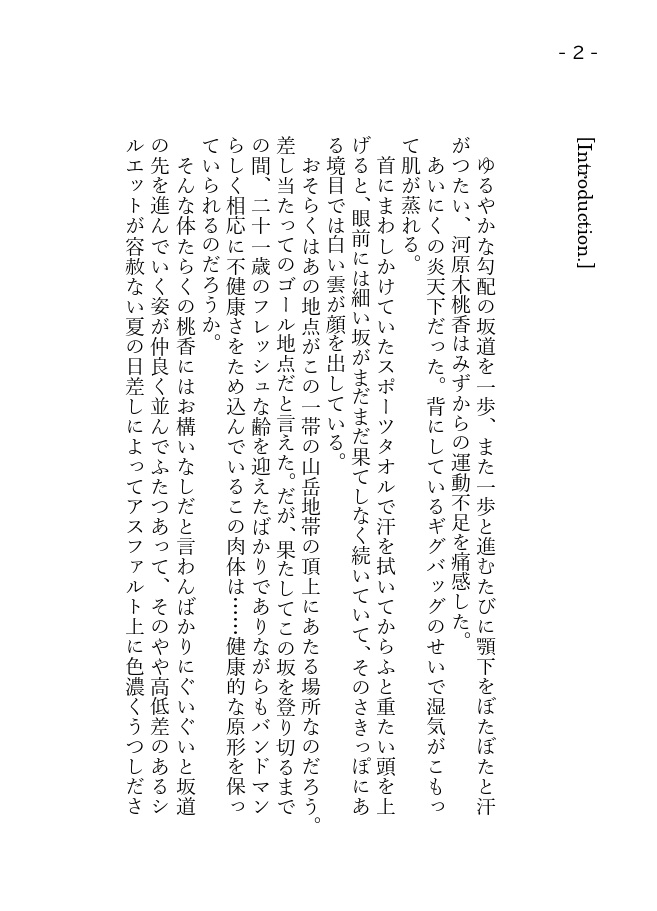 - 2 -
[Introduction.]
ゆるやかな勾配の坂道を一歩、また一歩と進むたびに顎下をぼたぼたと汗
がつたい、河原木桃香はみずからの運動不足を痛感した。
あいにくの炎天下だった。背にしているギグバッグのせいで湿気がこもっ
て肌が蒸れる。
首にまわしかけていたスポーツタオルで汗を拭いてからふと重たい頭を上
げると、眼前には細い坂がまだまだ果てしなく続いていて、そのさきっぽにあ
る境目では白い雲が顔を出している。
おそらくはあの地点がこの一帯の山岳地帯の頂上にあたる場所なのだろう。
差し当たってのゴール地点だと言えた。だが、果たしてこの坂を登り切るまで
の間、二十一歳のフレッシュな齢を迎えたばかりでありながらもバンドマン
らしく相応に不健康さをため込んでいるこの肉体は……健康的な原形を保っ
ていられるのだろうか。
そんな体たらくの桃香にはお構いなしだと言わんばかりにぐいぐいと坂道
の先を進んでいく姿が仲良く並んでふたつあって、そのやや高低差のあるシ
ルエットが容赦ない夏の日差しによってアスファルト上に色濃くうつしださ